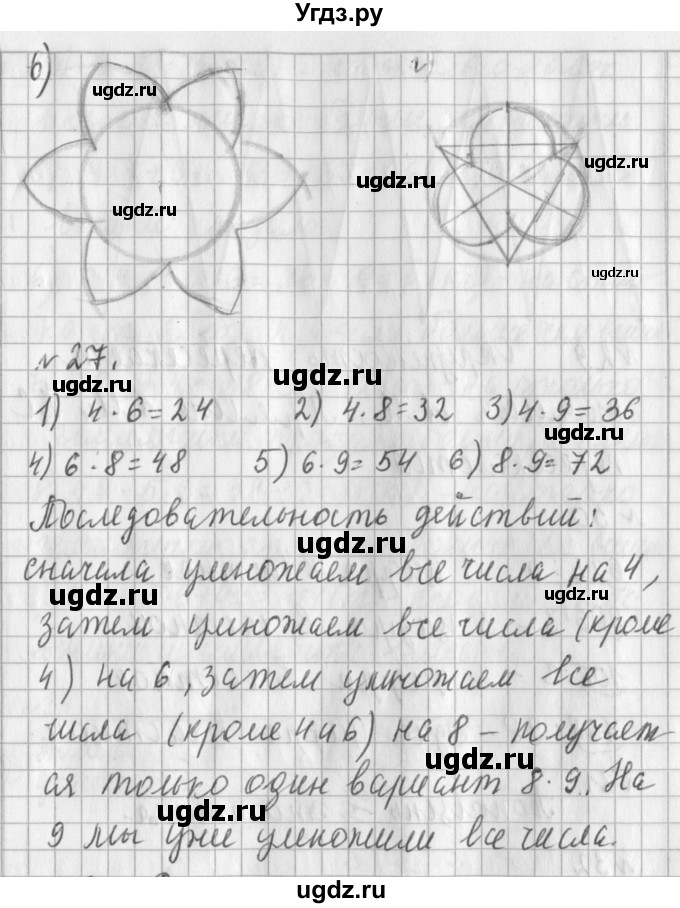 Угдз.ру
в) г)
ugdz.ru
ugdz.ru
ugdz.ru
ugdz.ru
№ 27.
ugdz.ru
ugdz.ru
1) 4 · 6 = 24 2) 4 · 8 = 32 3) 4 · 9 = 36
ugdz.ru
4) 6 · 8 = 48 5) 6 · 9 = 54 6) 8 · 9 = 72
ugdz.ru
Последовательность действий:
ugdz.ru
сначала умножаем все числа на 4,
ugdz.ru
ugdz.ru
затем умножаем все числа (кроме
4) на 6, затем умножаем все
ugdz.ru
числа (кроме 4 и 6) на 8 – получает-
ugdz.ru
ая только один вариант 8 · 9. На
ugdz.ru
9 мы уже умножили все числа.
ugdz.ru